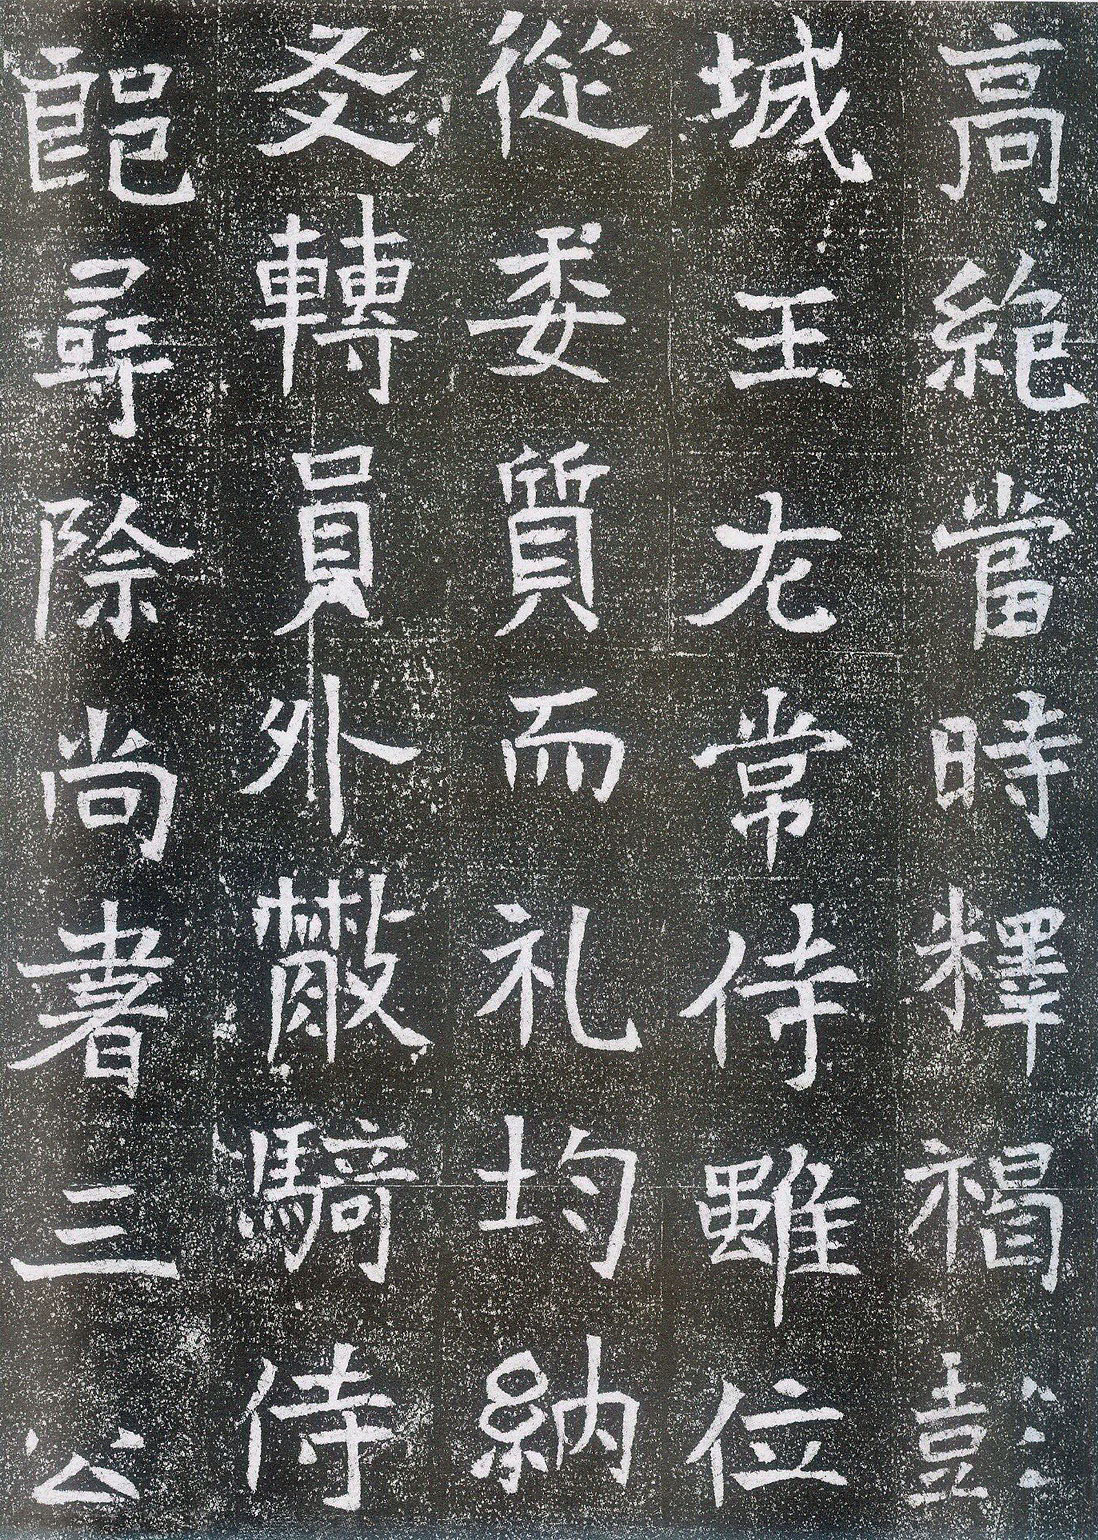 高絶當時釋褐彭
城王尤常侍雖位
従委質而礼均納
㕛轉員外散騎侍
郎尋除尚書三公